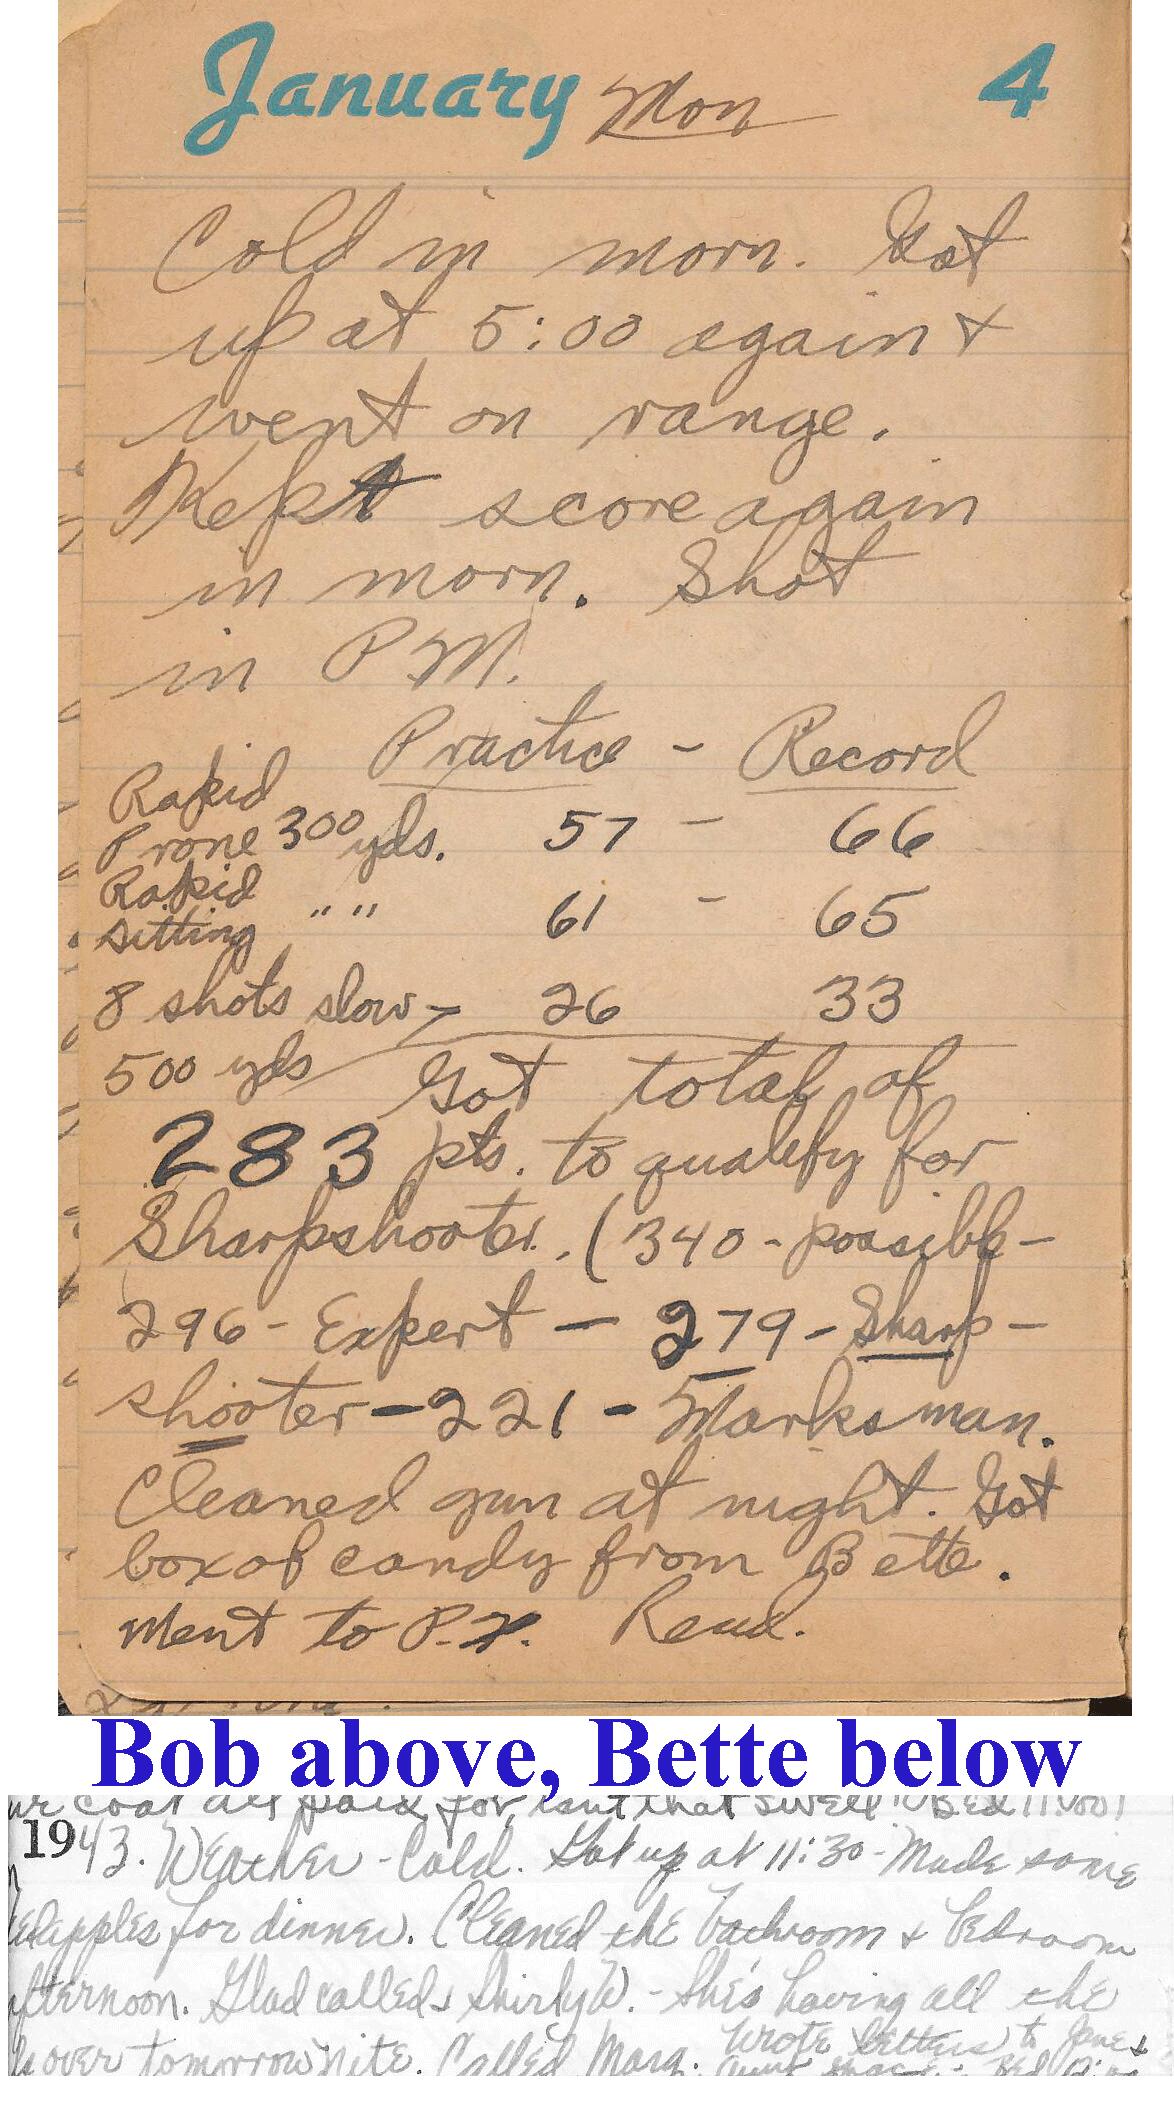 January Mon 4
Cold in morn. Got
up at 5:00 again &
went on range.
Kept score again
in morn. Shot
in P.M.
Practice - Record
Rapid
Prone 300 yds. 57 - 66
Rapid
sitting " " 61 - 65
8 shots slow - 26 33
500 yds
Got total of
283 pts. to qualify for
Sharpshooter. (340 - possible -
296 - Expert - 279 - Sharp -
shooter - 221 - Marksman.
Cleaned gun at night. Got
box of candy from Bette.
Went to P.X. Read.
Bob above, Bette below
coat all paid for, isn't that swell!! Bed 11:00!
1943. Weather - Cold. Got up at 11:30 - Made some
apples for dinner. Cleaned the bathroom & bedroom
afternoon. Glad called & Shirly W. - She's having all the
over tomorrow nite. Called Marg. Wrote letters to Jane &
Bed